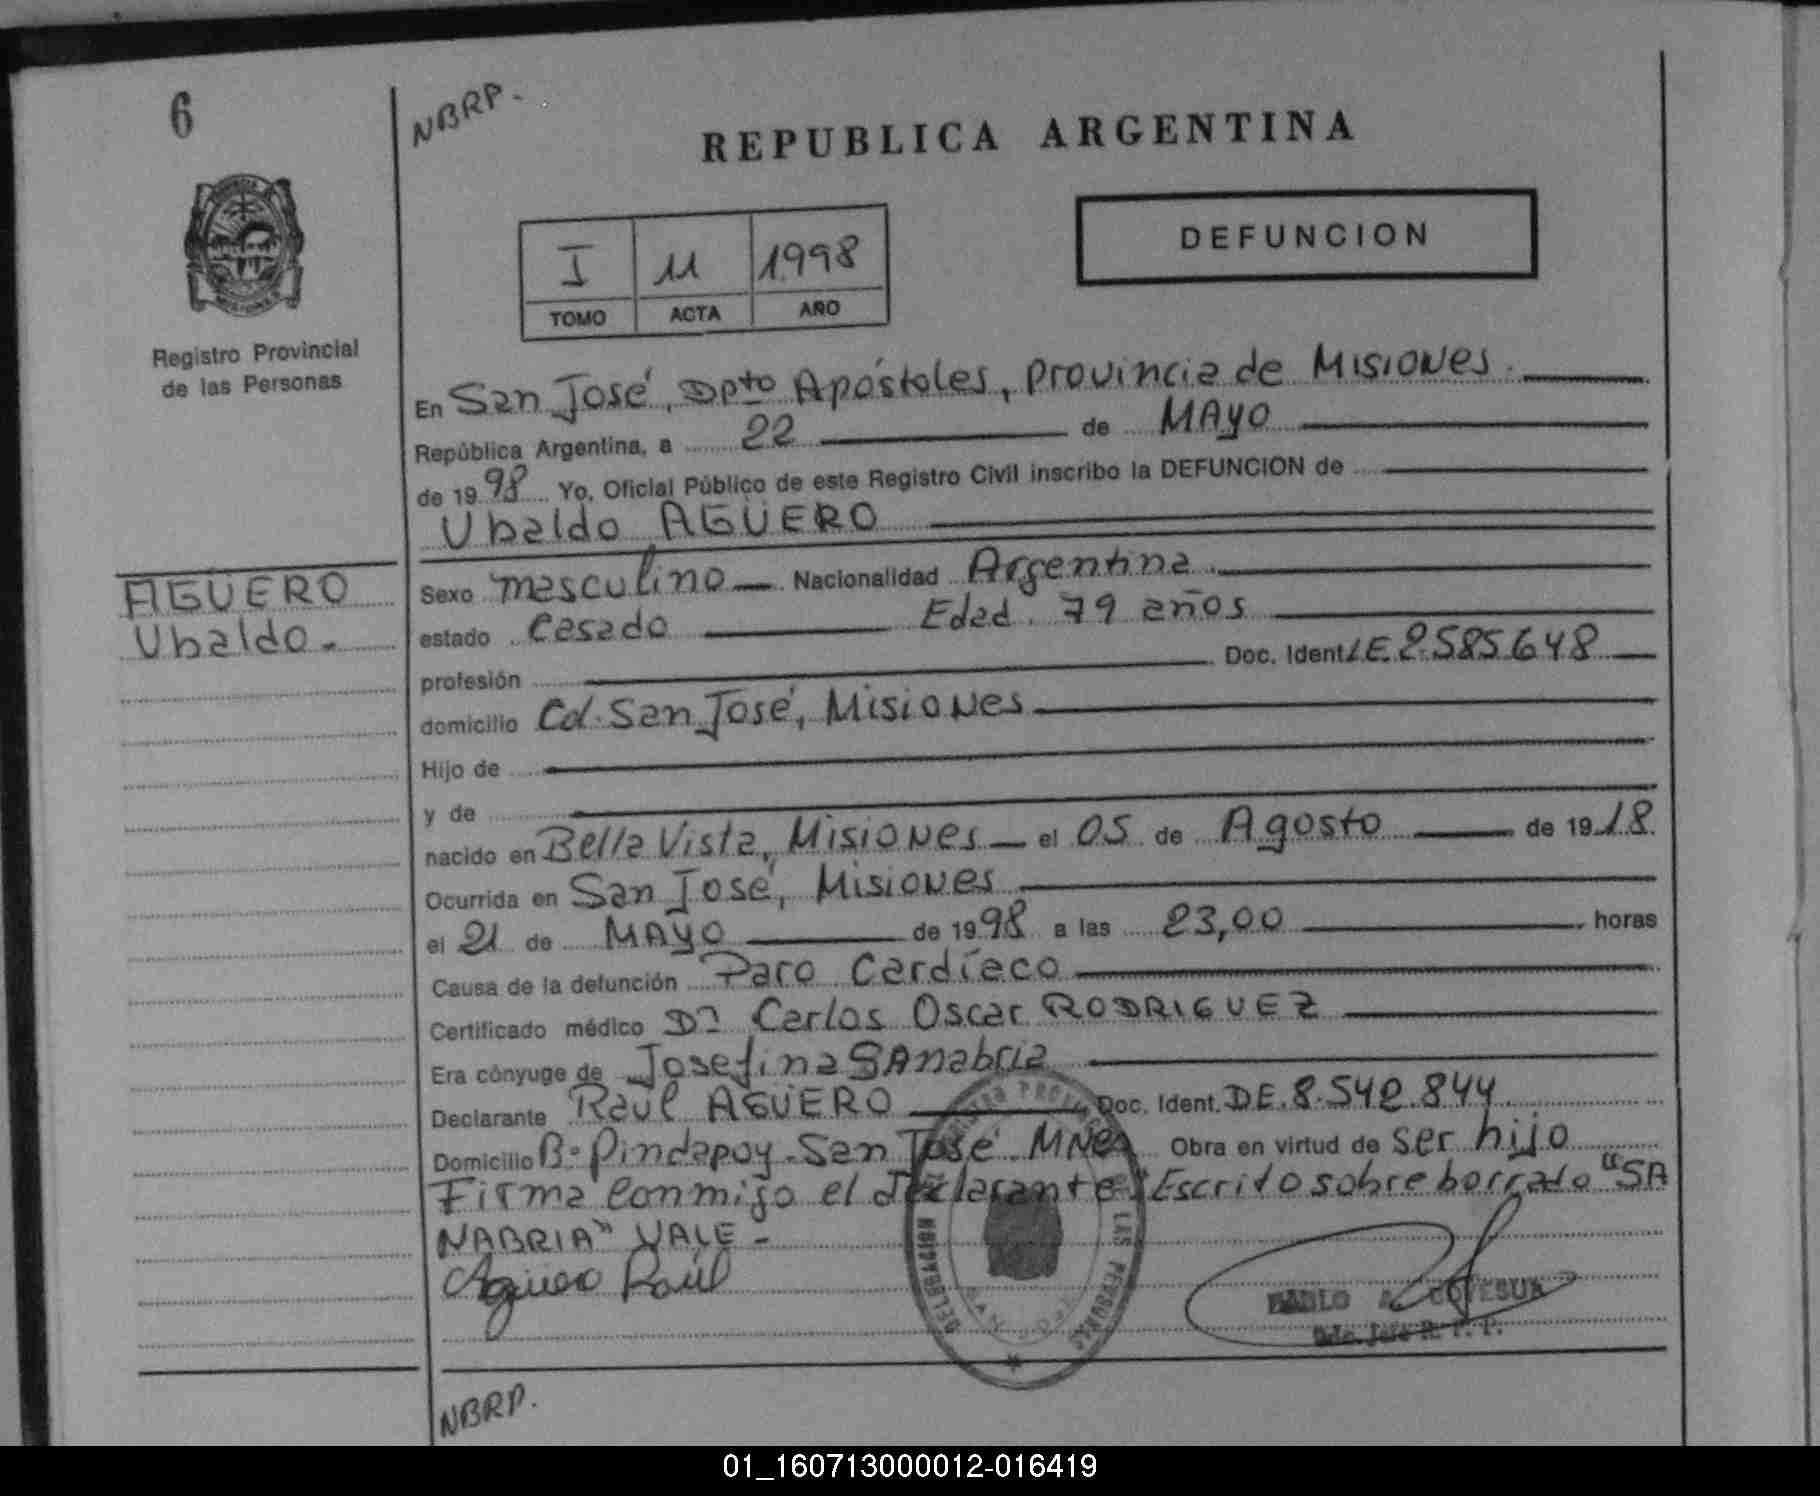 6
NBRP.
REPUBLICA ARGENTINA
I 11 1998
TOMO ACTA AÑO
DEFUNCION
Registro Provincial
de las Personas
En San José, Dpto Apóstoles, provincia de Misiones.
República Argentina, a 22 de MAyo
de 1998 Yo, Oficial Público de este Registro Civil inscribo la DEFUNCION de
Ubaldo AGÜERO
AGÜERO
Ubaldo.
Sexo masculino Nacionalidad Argentina
estado Casado Edad. 79 años
profesión Doc. Ident LE 2.585.648
domicilio Cd. San José, Misiones
Hijo de
y de
nacido en Bella Vista, Misiones el 05 de Agosto de 1918
Ocurrida en San José, Misiones
el 21 de MAyO de 1998 a las 23,00 horas
Causa de la defunción Paro Cardíaco
Certificado médico Dr Carlos Oscar RODRIGUEZ
Era cónyuge de Josefina SAnabria
Declarante Raúl AGÜERO Doc. Ident. DE.8.542.844
Domicilio Bº Pindapoy. San José Mnes Obra en virtud de ser hijo
Firma conmigo el declarante Escrito sobre borrado "SA
NABRIA" VALE -
Agüero Raúl
LAS PERSONAS
PABLO A.
NBRP.
01_160713000012-016419